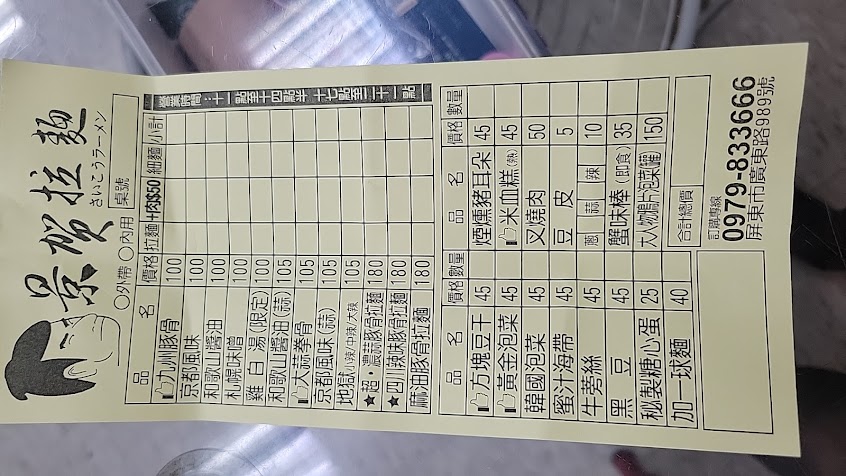 景賀拉麵
さいこうラーメン
○外帶 ○內用 桌號
品名 價格 拉麵 +肉$50 細麵 小計
九州豚骨 100
京都風味 100
和歌山醬油 100
札幌味噌 100
雞白湯(限定) 100
和歌山醬油(蒜) 105
大蒜拳骨 105
京都風味(蒜) 105
地獄 小辣/中辣/大辣 105
★超・濃蒜豚骨拉麵 180
★四川辣味豚骨拉麵 180
麻油豚骨拉麵 180
營業時間:十一點至十四點半 十七點至二十一點
品名 價格 數量 品名 價格 數量
方塊豆干 45 煙燻豬耳朵 45
黃金泡菜 45 米血糕(熱) 45
韓國泡菜 45 叉燒肉 50
蜜汁海帶 45 豆皮 5
牛蒡絲 45 蔥 蒜 辣 10
黑豆 45 蟹味棒(即食) 35
秘製糖心蛋 25 大人物鴨片泡菜罐 150
加一球麵 40 合計總價
訂購專線
0979-833666
屏東市廣東路989號